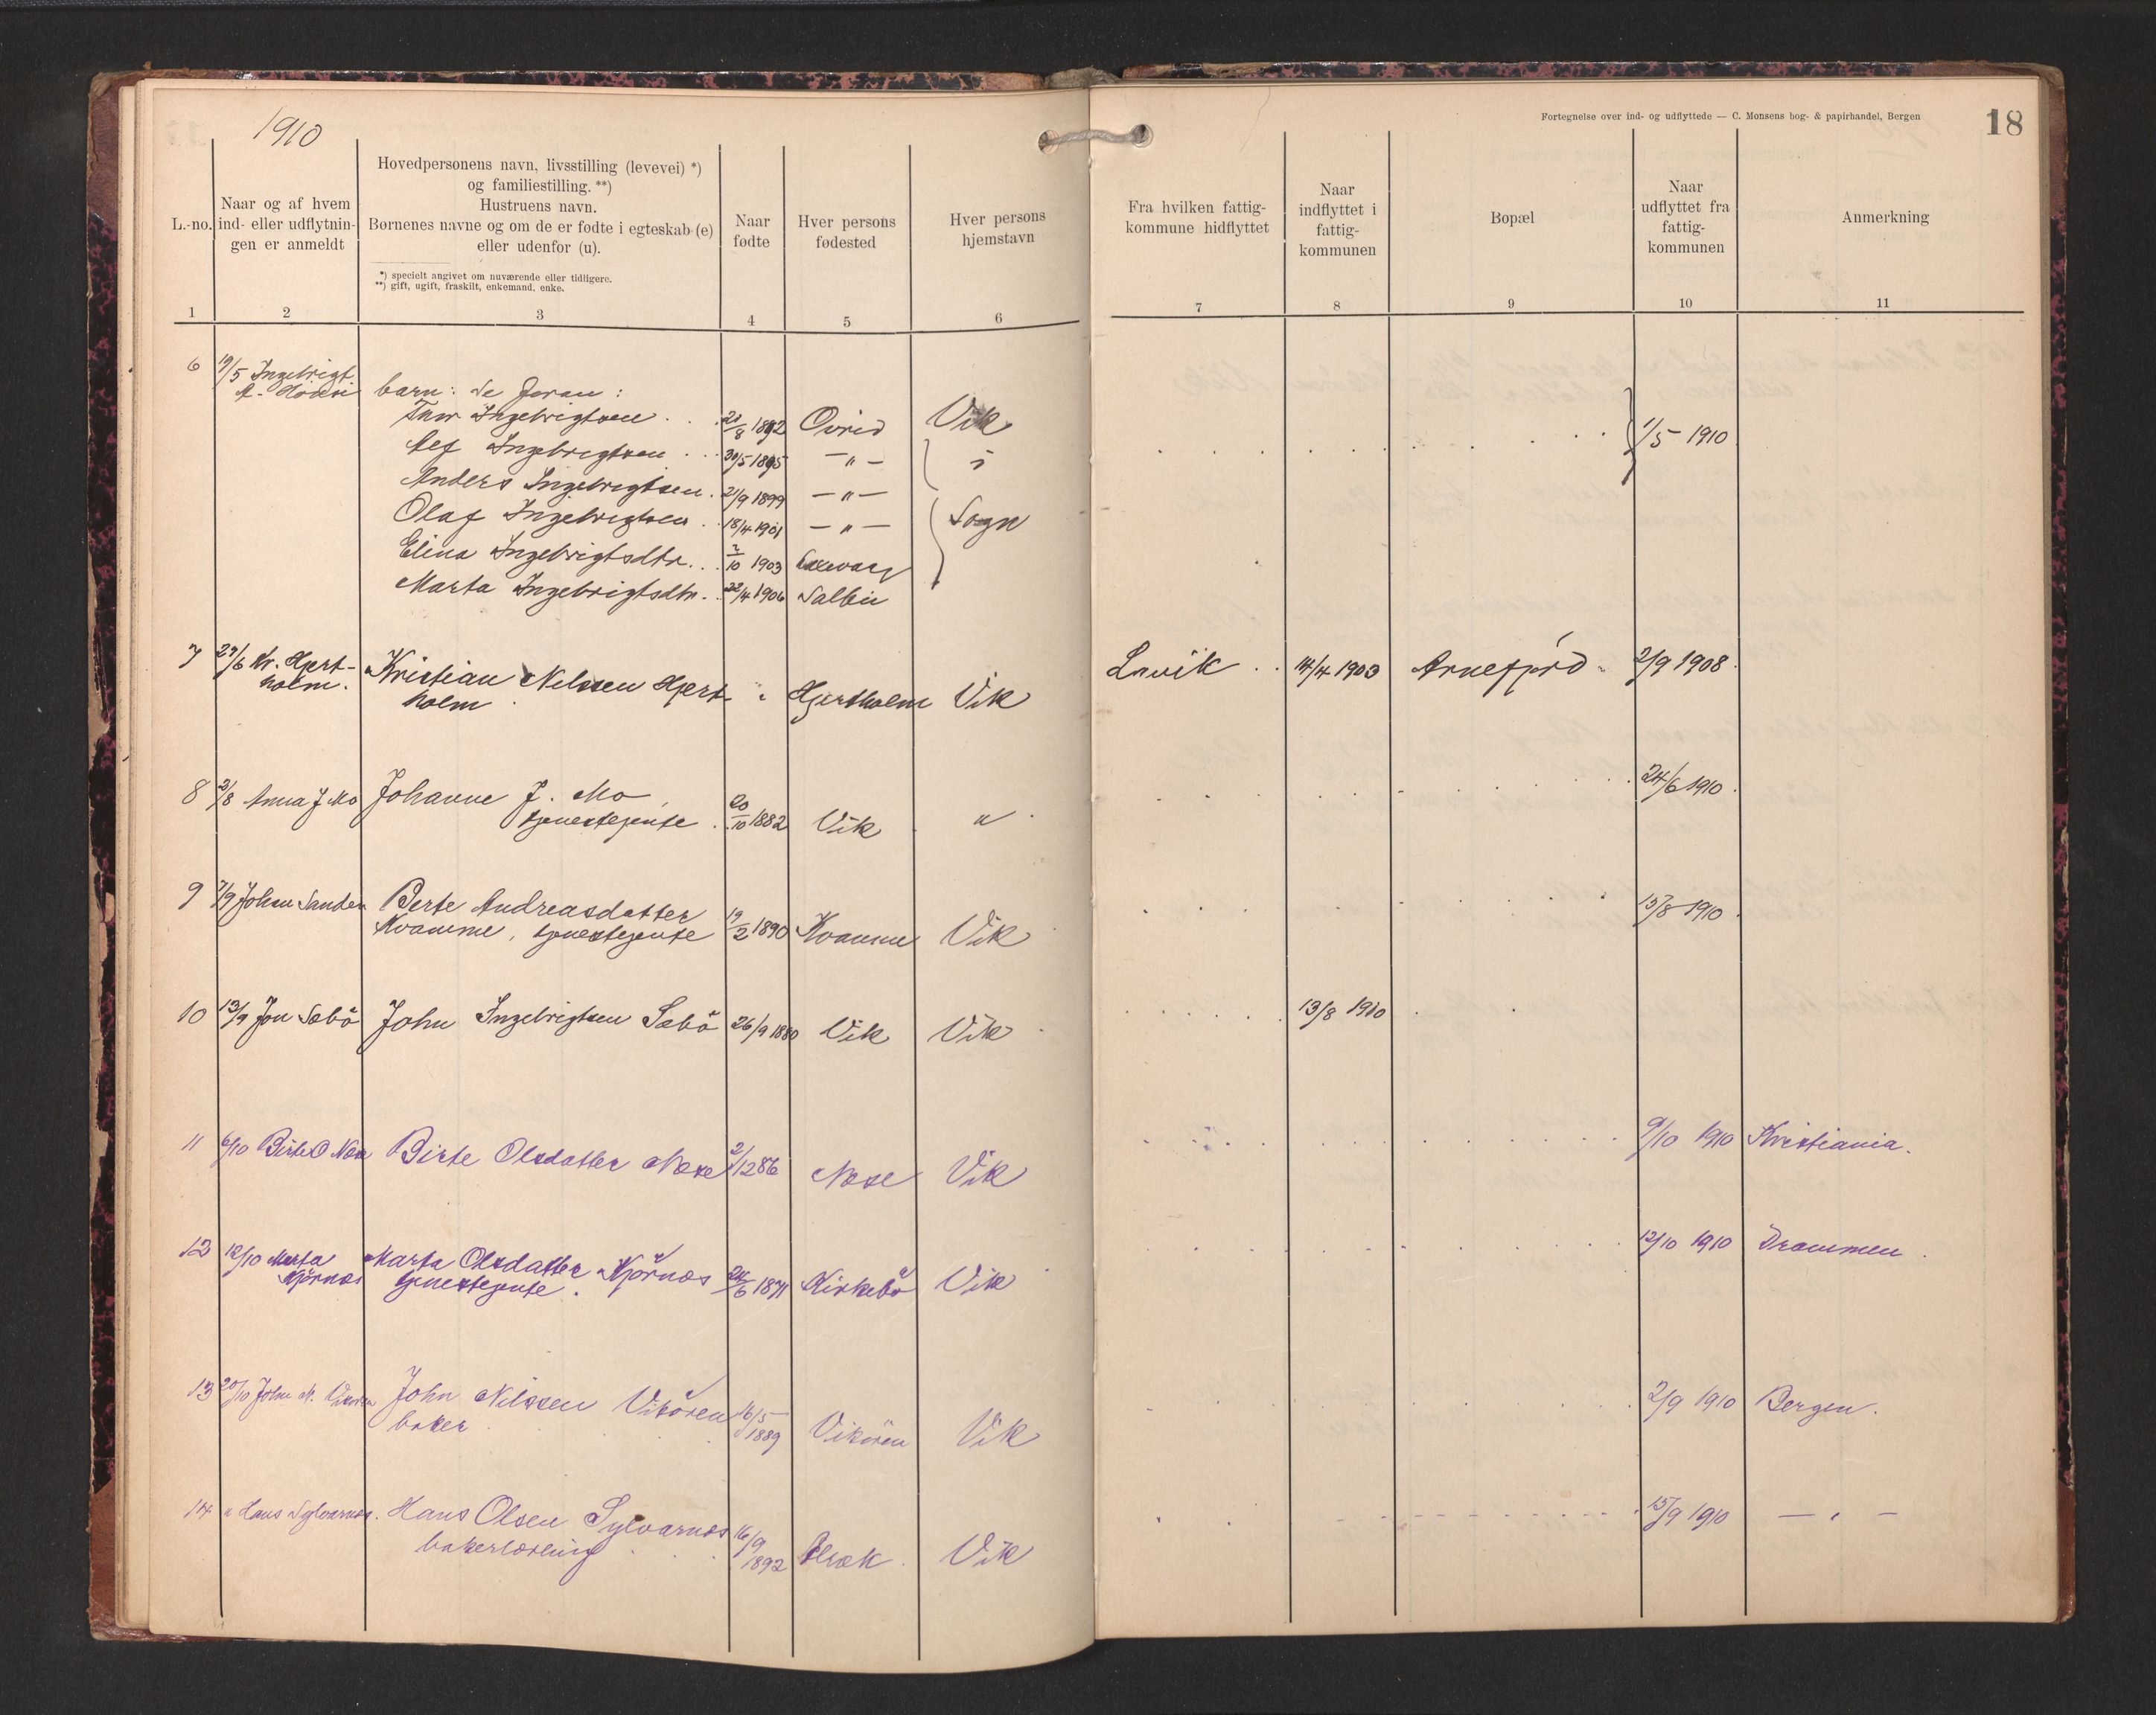 1910
Fortegnelse over ind- og udflyttede — C. Monsens bog- & papirhandel, Bergen
18
L.-no.
Naar og af hvem
ind- eller udflytnin-
gen er anmeldt
Hovedpersonens navn, livsstilling (levevei) *)
og familiestilling. **)
Hustruens navn.
Børnenes navne og om de er fødte i egteskab (e)
eller udenfor (u).
*) specielt angivet om nuværende eller tidligere.
**) gift, ugift, fraskilt, enkemand, enke.
Naar
fødte
Hver persons
fødested
Hver persons
hjemstavn
Fra hvilken fattig-
kommune hidflyttet
Naar
indflyttet i
fattig-
kommunen
Bopæl
Naar
udflyttet fra
fattig-
kommunen
Anmerkning
1 2 3 4 5 6 7 8 9 10 11
6 19/5 Ingebrigt
A. barn: se Foran:
Ingebrigtsen 1892 Ovrid Vik 1/5 1910
Ingebrigtsen 30/5 1895 —"— i
Anders Ingebrigtsen 21/9 1899 —"—
Olaf Ingebrigtsen 18/4 1901 —"— Sogn
Elina Ingebrigtsdtr. 2/10 1903
Marta Ingebrigtsdtr. 22/4 1906 Salbu
7 29/6 Kr. Hjert- Kristian Nilssen Hjert- Hjertholm Vik Lavik 14/4 1903 Arnefjord 2/9 1908
holm. holm
8 2/8 Anna J Mo Johanne J. Mo 24/6 1910
tjenestejente 20/10 1882 Vik "
9 7/9 Johan Sanden Berte Andreasdatter 15/8 1910
Kvamme, tjenestejente 19/2 1890 Kvamme Vik
10 13/9 Jon Sæbö John Ingebrigtsen Sæbö 26/9 1880 Vik Vik 13/8 1910
11 6/10 Birte O Nese Birte Olsdatter Nese 2/12 86 Nese Vik 9/10 1910 Kristiania.
12 12/10 Marta Marta Olsdatter Kjörnæs 12/10 1910 Drammen.
Kjörnæs tjenestejente. 24/6 1871 Kirkebö Vik
13 20/10 John N. Vikören John Nilssen Vikören 16/5 2/9 1910 Bergen.
baker 1889 Vikören Vik
14 " Hans Sylvarnæs. Hans Olsen Sylvarnæs 16/9 15/9 1910 — " —
bakerlærling 1892 Vik